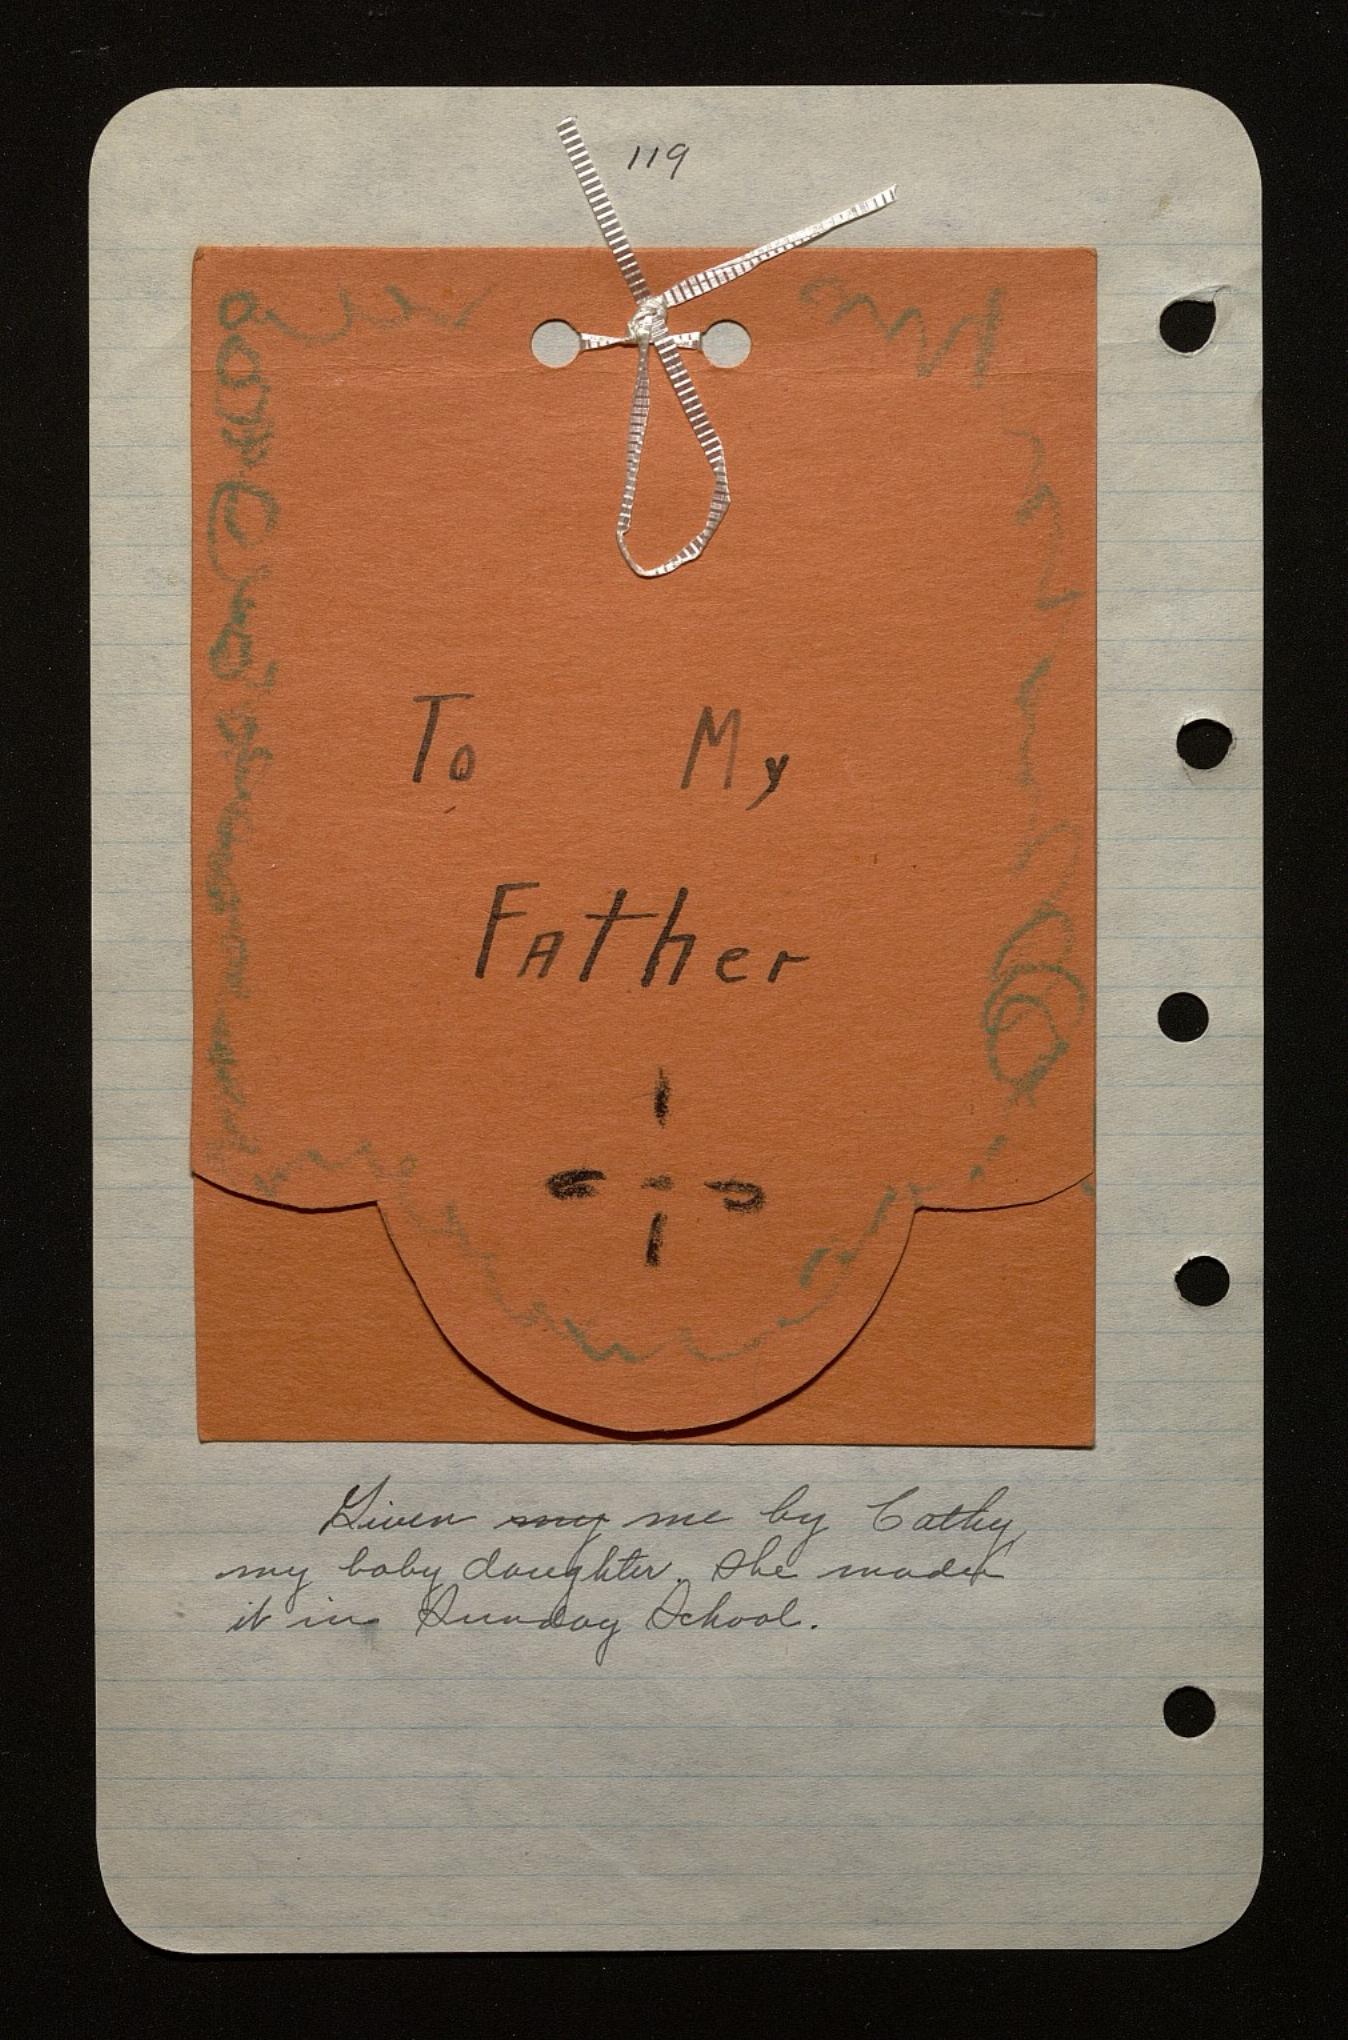 119
To My
Father
Given my me by Cathy,
my baby daughter. She made
it in Sunday School.